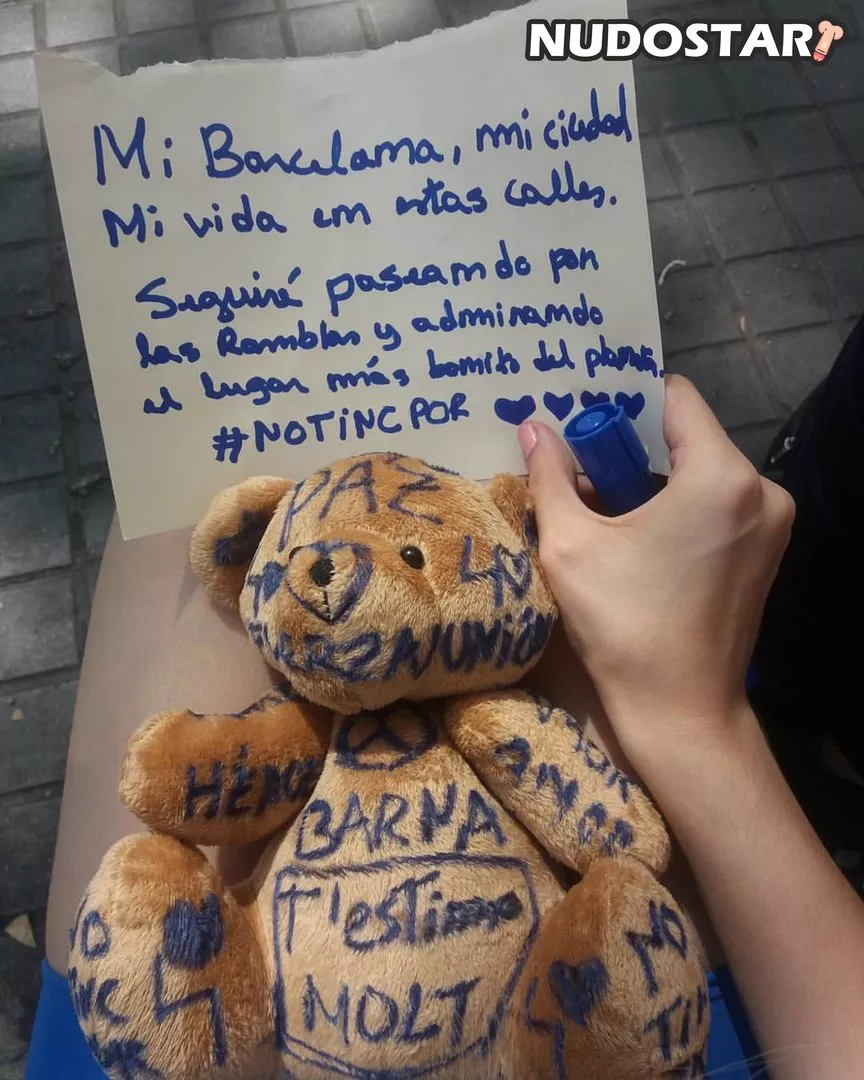 NUDOSTAR
Mi Barcelama, mi ciudad
Mi vida em estas calles.
Seguiré paseamdo por
las Ramblas y admiramdo
el lugar más bomito del planeta.
#NOTiNCPOR
PAZ
FUERZA/UNIÓN
BARNA
T'estimo
MOLT
NO
TiN
NO
iNC